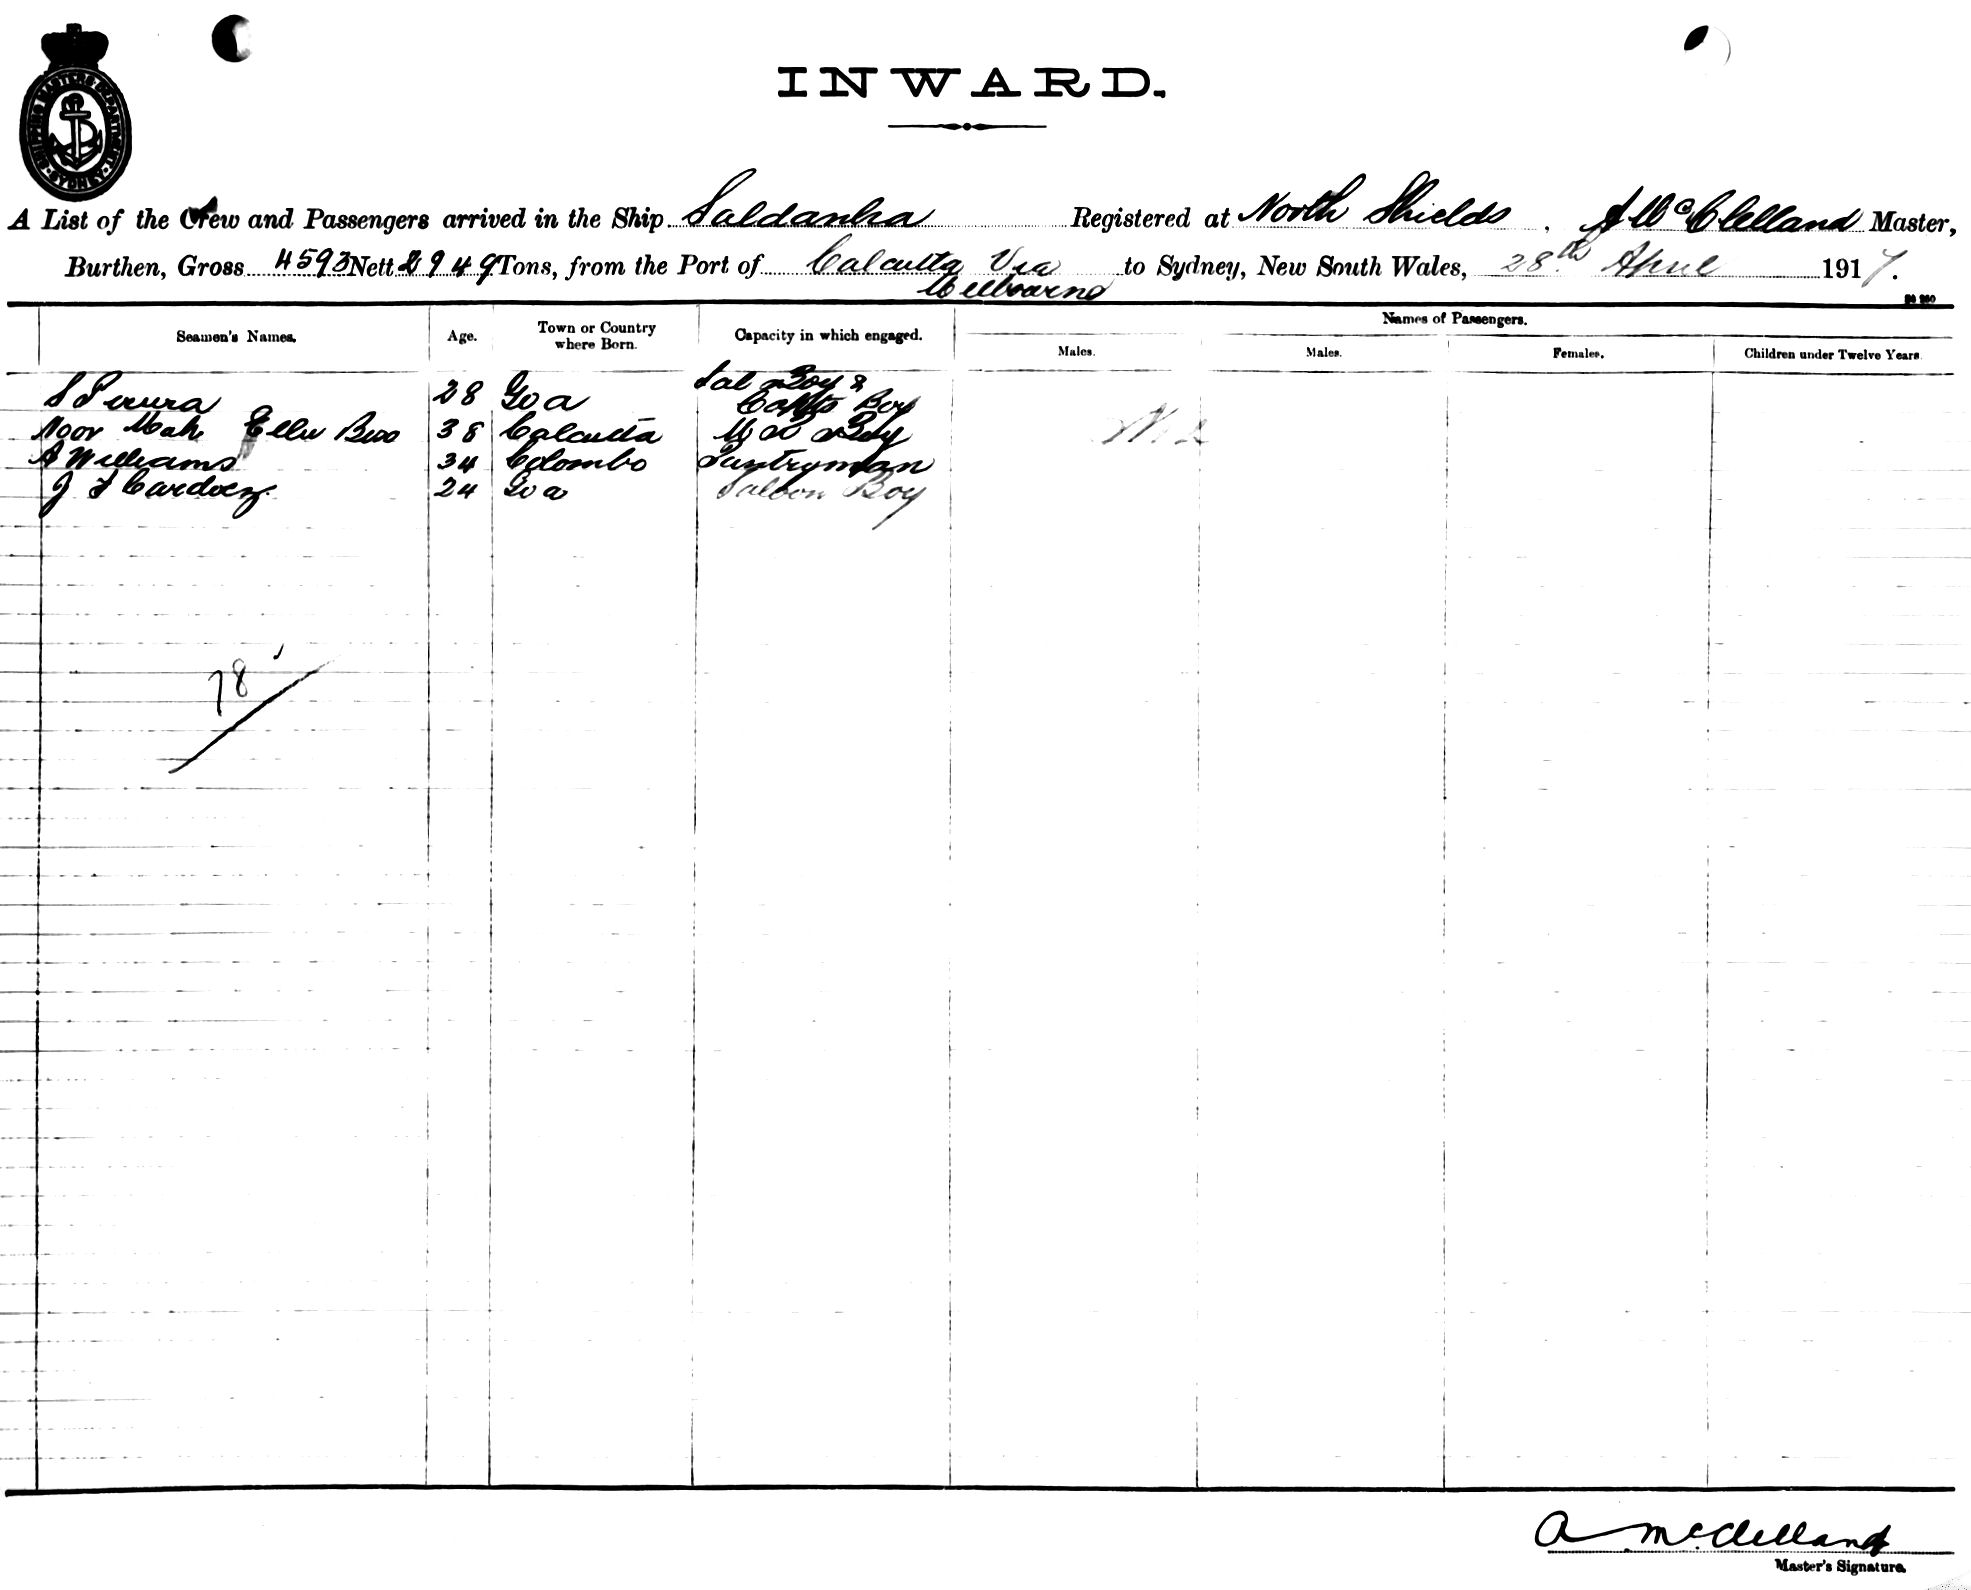 SHIPPING MASTERS DEPARTMENT SYDNEY
INWARD.
A List of the Crew and Passengers arrived in the Ship Saldanha Registered at North Shields . A McClelland Master,
Burthen, Gross 4593 Nett 2949 Tons, from the Port of Calcutta Via Melbourne to Sydney, New South Wales, 28th April 1917.
Seamen's Names. Age. Town or Country where Born. Capacity in which engaged. Names of Passengers.
Males. Males. Females. Children under Twelve Years
S Perura 28 Goa Sal Boy & Capts Boy
Noor Mah Ellu Bux 38 Calcutta M R Boy
A Williams 34 Colombo Pantryman
J F Cardoez 24 Goa Saloon Boy
78
A McClelland
Master's Signature.